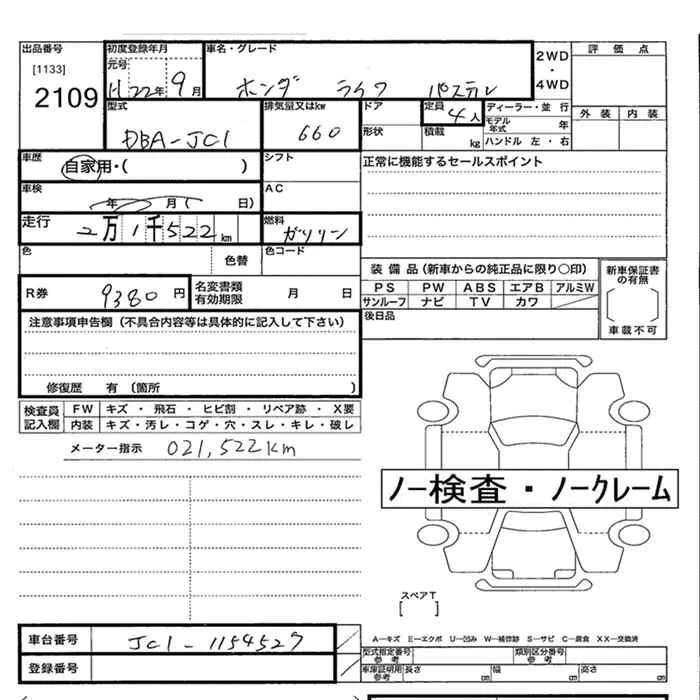 出品番号 初度登録年月 車名・グレード 2WD・4WD 評価点
[1133] 元号
2109 H22年 9月 ホンダ ライフ パステル
型式 排気量又はkw ドア 定員 ディーラー・並行 外装 内装
DBA-JC1 660 4人 モデル年式 年
形状 積載 kg ハンドル 左・右
車歴 自家用・( ) シフト 正常に機能するセールスポイント
車検 年 月( 日) AC
走行 2万1千522km 燃料 ガソリン
色 色替 色コード
装備品(新車からの純正品に限り○印) 新車保証書の有無
PS PW ABS エアB アルミW
サンルーフ ナビ TV カワ
R券 9380円 名変書類有効期限 月 日 後日品 車載不可
注意事項申告欄(不具合内容等は具体的に記入して下さい)
修復歴 有〔箇所 〕
検査員記入欄 FW キズ・飛石・ヒビ割・リペア跡・X要
内装 キズ・汚レ・コゲ・穴・スレ・キレ・破レ
メーター指示 021,522km
ノー検査・ノークレーム
スペアT
[ ]
車台番号 JC1-1154527
A—キズ E—エクボ U—凹み W—補修跡 S—サビ C—腐食 XX—交換済
型式指定番号 参考 類別区分番号 参考
登録番号 車庫証明用参考 長さ cm 幅 cm 高さ cm